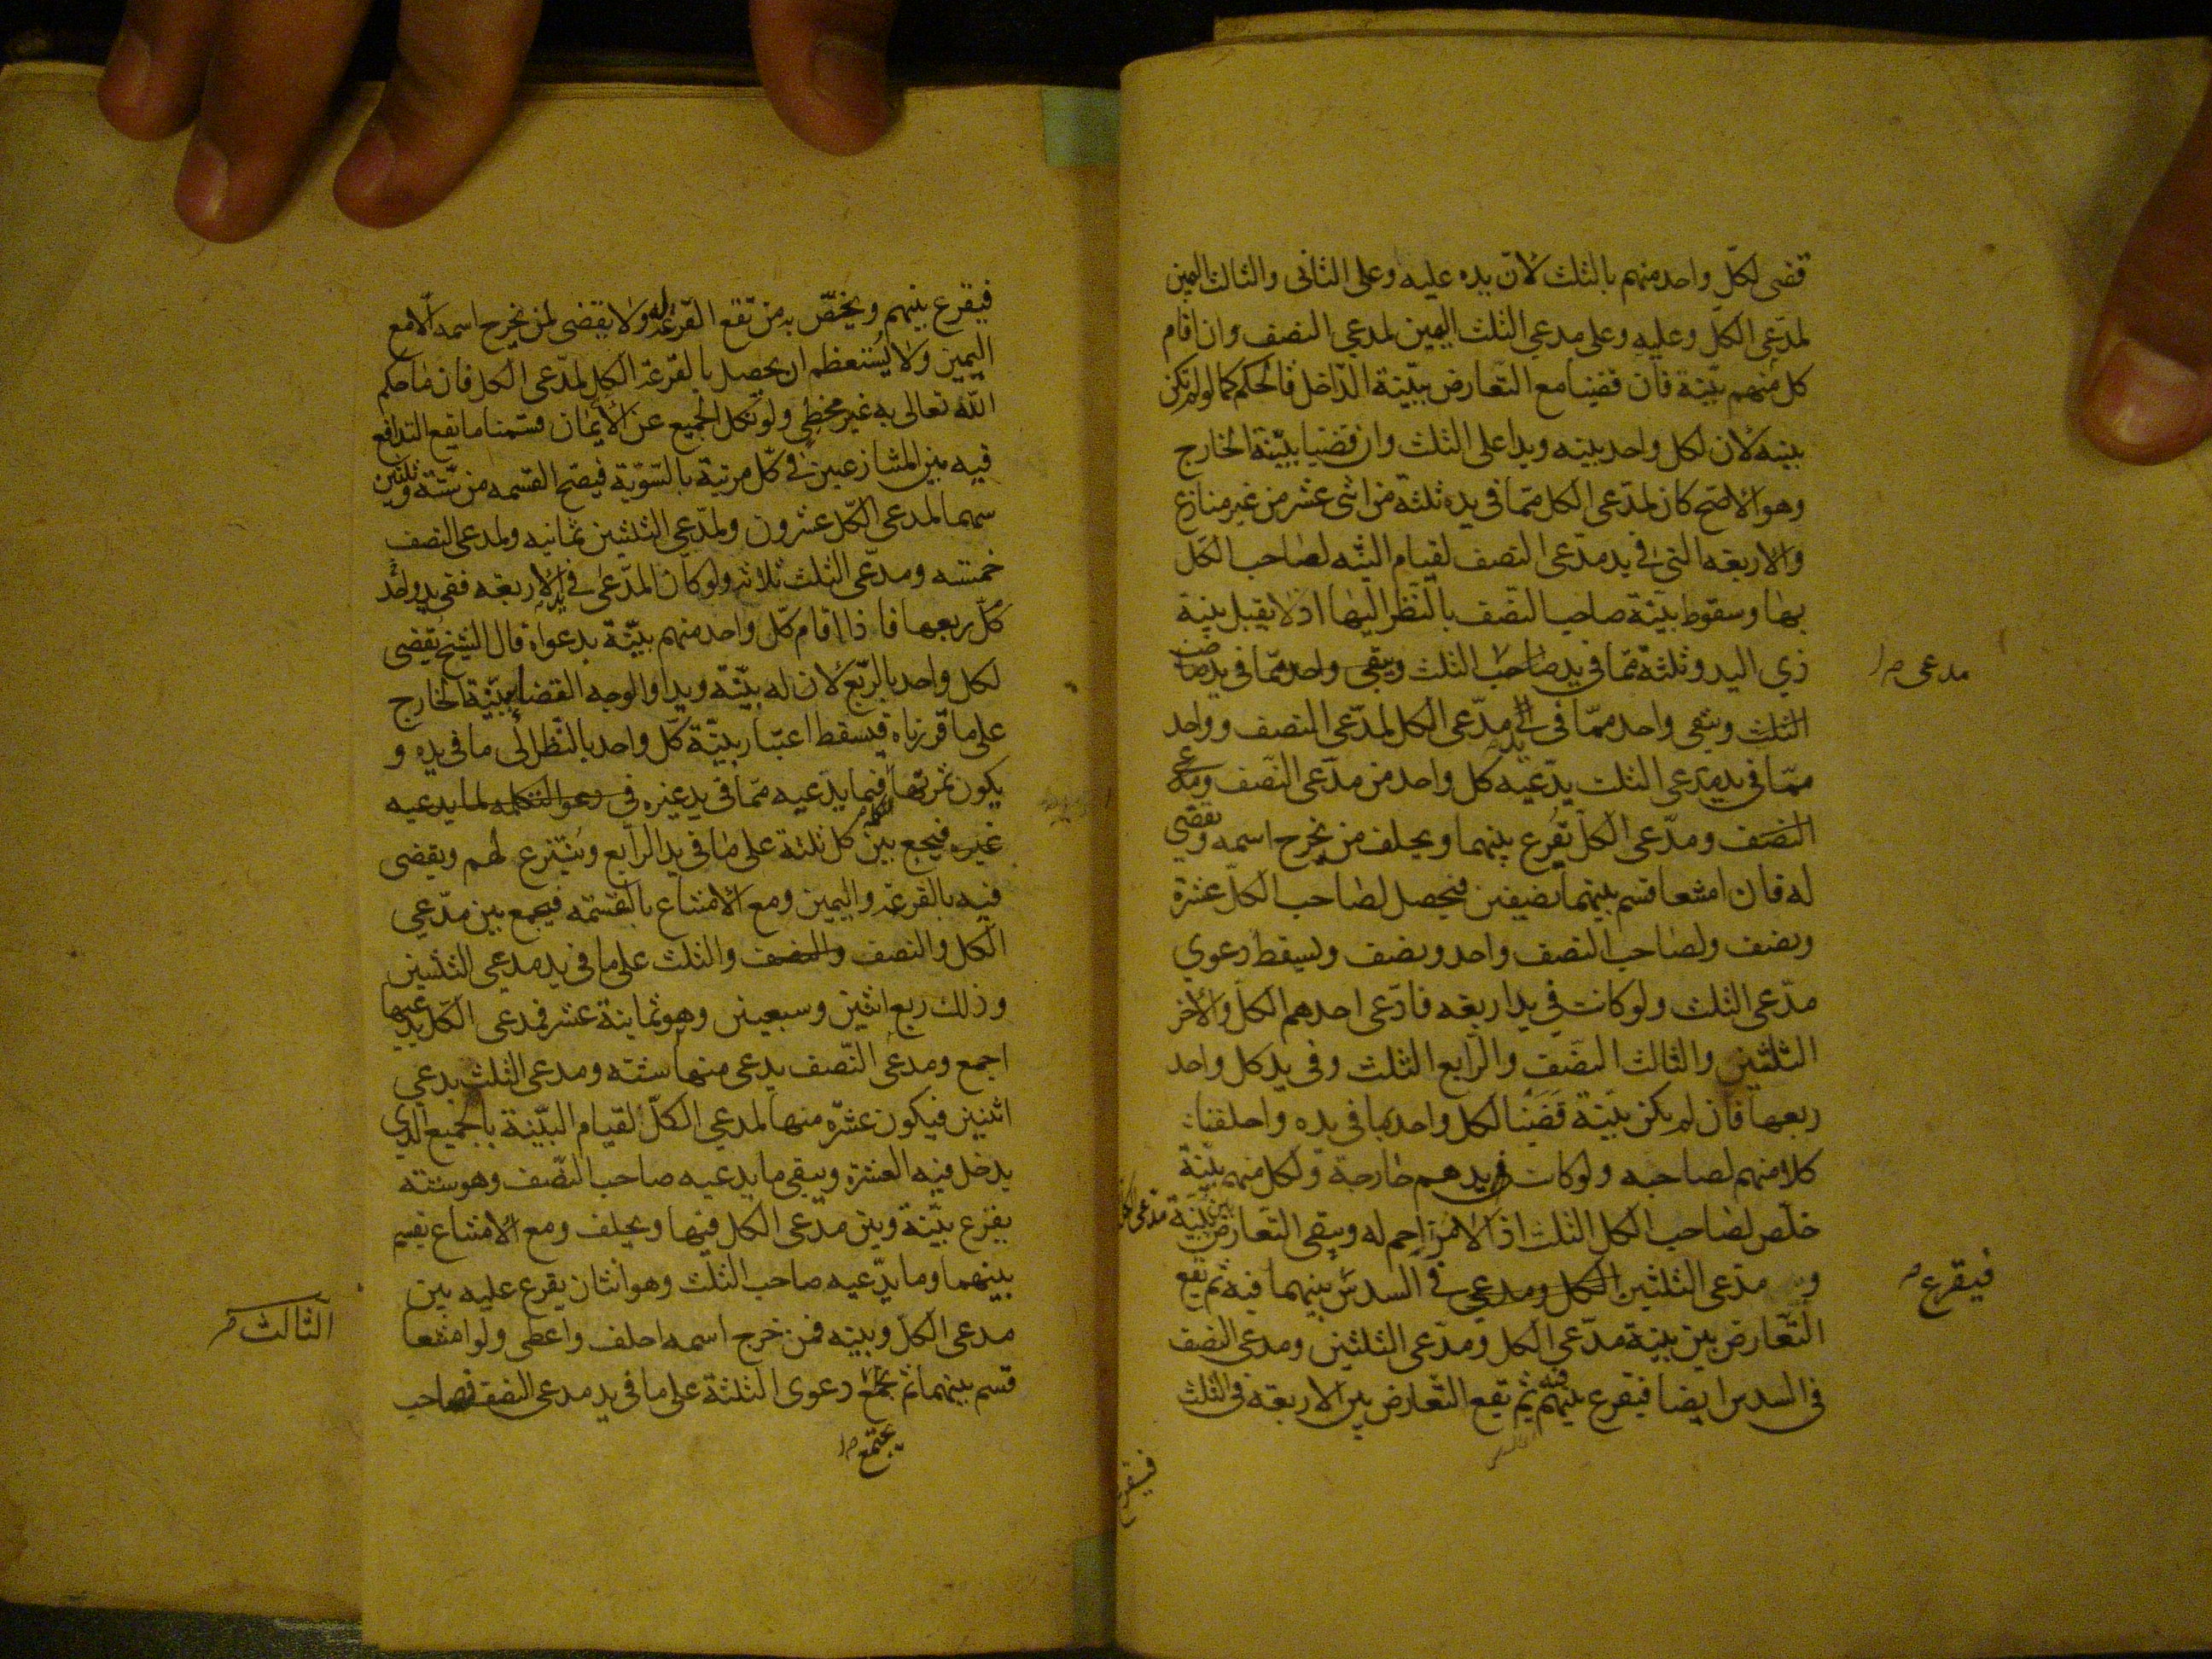 قضى لكلّ واحد منهم بالثلث لانّ يده عليه وعلى الثانى والثالث اليمين
لمدّعى الكلّ وعليه وعلى مدعي الثلث اليمين لمدعي النصف وان اقام
كل منهم بيّنة فان قضينا مع التعارض ببيّنة الدّاخل فالحكم كما لو لم تكن
بينه لان لكل واحد بينه ويدا على الثلث وان قضينا ببيّنة الخارج
وهو الاصح كان لمدّعى الكل ممّا فى يده ثلثة من اثنى عشر من غير منازع
والاربعه التى فى يد مدّعى النصف لقيام البيّنه لصاحب الكل
بها وسقوط بيّنة صاحب النصف بالنّظر اليها اذ لا يقبل بينة
ذي اليد وثلثة ممّا فى يد صاحب الثلث ويبقى واحد ممّا فى يد صاحب
الثلث وبقى واحد ممّا فى يد مدّعى الكل لمدّعى النصف وواحد
ممّا فى يد مدعى الثلث يدّعيه كل واحد من مدّعى النصف ومدعى
مدعى
النصف ومدّعى الكلّ يقرع بينهما ويحلف من يخرج اسمه ويقضى
له فان امتنعا قسم بينهما نصفين فيحصل لصاحب الكلّ عشرة
ونصف ولصاحب النصف واحد ونصف ويسقط دعوي
مدّعى الثلث ولو كانت فى يد اربعه فادّعى احدهم الكلّ والآخر
الثلثين والثالث النصف والرابع الثلث وفى يد كل واحد
ربعها فان لم يكن بيّنة قضينا لكل واحد بما فى يده واحلفنا
كلا منهم لصاحبه ولو كانت فى يدهم خارجة ولكل منهم بيّنة
خلّص لصاحب الكل الثلث اذ لا مزاحم له ويبقى التعارض بين بيّنة مدّعى الكل
و مدّعى الثلثين الكل ومدعي فى السدس بينهما فيه ثم يقع
فيقرع
التّعارض بين بينة مدّعي الكل ومدّعى الثلثين ومدعى النصف
فى السدس ايضا فيقرع بينهم فيه ثم يقع التعارض بين الاربعه فى الثلث
فيقرع
فيقرع بينهم ويخصّ به من تقع القرعة له ولا يقضى لمن يخرج اسمه الّا مع
اليمين ولا يستعظم ان يحصل بالقرعة الكل لمدّعى الكل فان ما حكم
اللّه تعالى به غير مخطئ ولو نكل الجميع عن الايمان قسمنا ما يقع التدافع
فيه بين المتنازعين فى كلّ مرتبة بالسّويّة فيصح القسمه من ستّة وثلثين
سهما لمدعى الكلّ عشرون ولمدّعى الثلثين ثمانيه ولمدعى النصف
خمسه ومدّعى الثلث ثلاثه ولو كان المدّعى فى يد الاربعه ففى يد واحد
كلّ ربعها فاذا اقام كلّ واحد منهم بيّنة بدعواه قال الشيخ يقضى
لكل واحد بالرّبع لان له بيّنة ويدا والوجه القضاء ببيّنة الخارج
على ما قرّرناه فيسقط اعتبار بيّنة كلّ واحد بالنّظر الى ما فى يده و
يكون ثمرتها فيما يدّعيه ممّا فى يد غيره فى دعوا التكمله لما يدعيه
غيره فيجمع بين كل ثلثة على ما فى يد الرابع وينتزع لهم ويقضى
فيه بالقرعة واليمين ومع الامتناع بالقسمه فيجمع بين مدّعي
الكل والنصف والنصف والثلث على ما فى يد مدعي الثلثين
وذلك ربع اثنين وسبعين وهو ثمانية عشر فمدعى الكل يدعيها
اجمع ومدعى النّصف يدعى منها ستّه ومدعى الثلث يدعي
اثنين فيكون عشرة منها لمدعي الكلّ لقيام البيّنة بالجميع الذي
يدخل فيه العشرة ويبقى ما يدعيه صاحب النّصف وهو ستة
يقرع بيّنة وبين مدّعى الكل فيها ويحلف ومع الامتناع يقسم
بينهما وما يدّعيه صاحب الثلث وهو اثنان يقرع عليه بين
مدعى الكلّ وبينه فمن خرج اسمه احلف واعطى ولو امتنعا
الثالث
قسم بينهما ثم يجمع دعوى الثلثة على ما فى يد مدعى النصف فصاحب
يجتمع